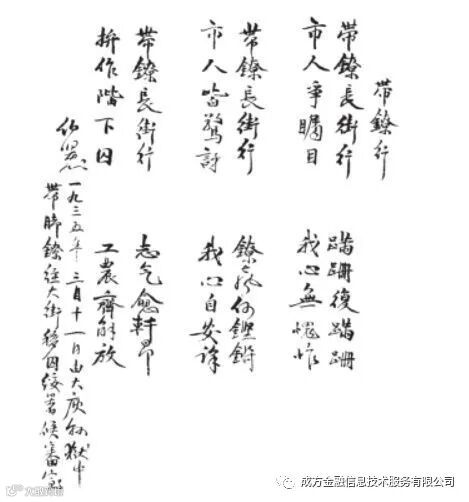 帶鐐行
帶鐐長街行 蹣跚復蹣跚
市人爭矚目 我心無愧怍
帶鐐長街行 鐐聲何鏗鏘
市人皆驚訝 我心自安詳
帶鐐長街行 志氣愈軒昂
拚作階下囚 工農齊解放
伯堅
一九三五年三月十一日由大庾獄中
帶脚鐐經大街移囚綏署候審室
成方金融信息技术服务有限公司